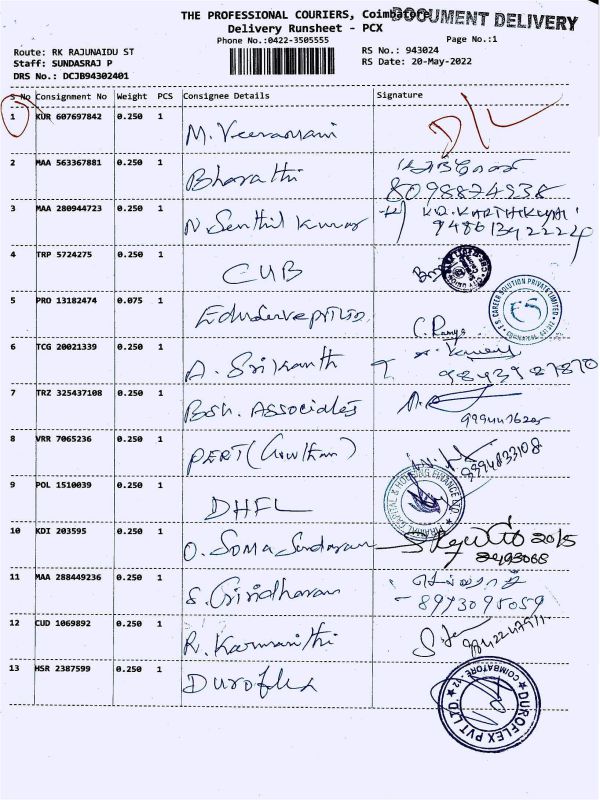 THE PROFESSIONAL COURIERS, Coimbatore
DOCUMENT DELIVERY
Delivery Runsheet - PCX
Phone No.:0422-3505555
Page No.:1
Route: RK RAJUNAIDU ST
RS No.: 943024
Staff: SUNDASRAJ P
RS Date: 20-May-2022
DRS No.: DCJB94302401
S No Consignment No Weight PCS Consignee Details Signature
1 KUR 607697842 0.250 1 M. Veeramani D/L
2 MAA 563367881 0.250 1 Bharathi
8098874938
3 MAA 280944723 0.250 1 N. Senthil Kumar
4 TRP 5724275 0.250 1 CUB
5 PRO 13182474 0.075 1
E.S. CAREER SOLUTION PRIVATE LIMITED
ES
C. Ramya
6 TCG 20021339 0.250 1 A. Srikanth
7 TRZ 325437108 0.250 1 Bsh. Associates
8 VRR 7065236 0.250 1 PERT (Gowtham)
9994833108
9 POL 1510039 0.250 1 DHFL
PIRAMAL CAPITAL & HOUSING FINANCE
10 KDI 203595 0.250 1 O. Soma Sundaram
20/5
11 MAA 288449236 0.250 1 S. Giridharan
8973095059
12 CUD 1069892 0.250 1
13 HSR 2387599 0.250 1 Duroflex
DUROFLEX PVT LTD
COIMBATORE - 12